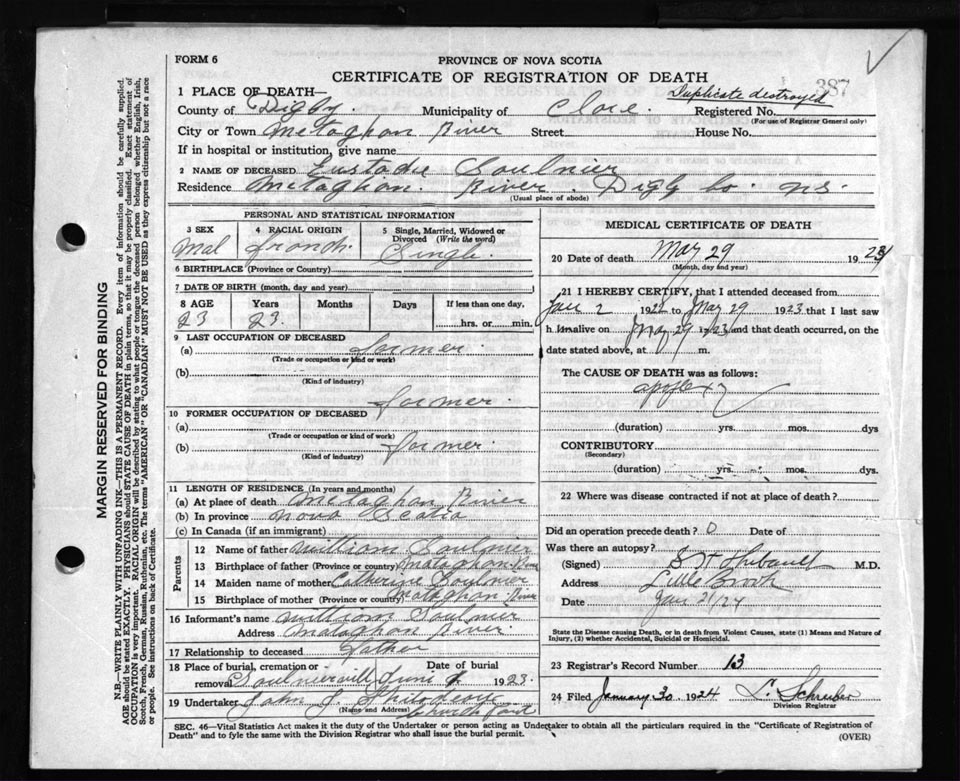 FORM 6
PROVINCE OF NOVA SCOTIA
CERTIFICATE OF REGISTRATION OF DEATH
387
Duplicate destroyed
1 PLACE OF DEATH—
County of Digby Municipality of Clare. Registered No.
(For use of Registrar General only)
City or Town Metaghan River Street House No.
If in hospital or institution, give name
2 NAME OF DECEASED Soulnier
Residence Metaghan River. Digby Co. N.S.
(Usual place of abode)
PERSONAL AND STATISTICAL INFORMATION
3 SEX 4 RACIAL ORIGIN 5 Single, Married, Widowed or Divorced (Write the word)
Mal french. Single.
6 BIRTHPLACE (Province or Country)
7 DATE OF BIRTH (month, day and year)
8 AGE Years Months Days If less than one day,
23 23. hrs. or min.
9 LAST OCCUPATION OF DECEASED
(a) farmer.
(Trade or occupation or kind of work)
(b)
(Kind of industry)
farmer.
10 FORMER OCCUPATION OF DECEASED
(a)
(Trade or occupation or kind of work)
(b) farmer.
(Kind of industry)
11 LENGTH OF RESIDENCE (In years and months)
(a) At place of death Metaghan River
(b) In province Nova Scotia
(c) In Canada (if an immigrant)
Parents
12 Name of father William Soulnier
13 Birthplace of father (Province or country) Metaghan River
14 Maiden name of mother Catherine Soulnier
15 Birthplace of mother (Province or country) Metaghan River
16 Informant's name William Soulnier
Address Metaghan River.
17 Relationship to deceased Father
18 Place of burial, cremation or removal Soulnierville Date of burial June 1923.
19 Undertaker John J.
(Name and Address) Church Point
MEDICAL CERTIFICATE OF DEATH
20 Date of death May 29 1923
(Month, day and year)
21 I HEREBY CERTIFY, that I attended deceased from
Jan 2 192 to May 29 1923 that I last saw
h im alive on May 29 1923 and that death occurred, on the
date stated above, at m.
The CAUSE OF DEATH was as follows:
apoplexy
(duration) yrs. mos. dys
CONTRIBUTORY
(Secondary)
(duration) yrs. mos. dys.
22 Where was disease contracted if not at place of death?
Did an operation precede death? 0 Date of
Was there an autopsy?
(Signed) Thibault M.D.
Address Little Brook
Date Jan 21/24
State the Disease causing Death, or in death from Violent Causes, state (1) Means and Nature of Injury, (2) whether Accidental, Suicidal or Homicidal.
23 Registrar's Record Number 13
24 Filed January 30 1924 Schreiber
Division Registrar
SEC. 46—Vital Statistics Act makes it the duty of the Undertaker or person acting as Undertaker to obtain all the particulars required in the "Certificate of Registration of
Death" and to fyle same with the Division Registrar who shall issue the burial permit. (OVER)
MARGIN RESERVED FOR BINDING
N.B.—WRITE PLAINLY WITH UNFADING INK—THIS IS A PERMANENT RECORD. Every item of information should be carefully supplied.
AGE should be stated EXACTLY. PHYSICIANS should STATE CAUSE OF DEATH in plain terms, so that it may be properly classified. Exact statement of
OCCUPATION is very important. RACIAL ORIGIN will be described by stating to what people or tongue the deceased person belonged whether English, Irish,
Scotch, French, German, Russian, Ruthenian, etc. The terms "AMERICAN" OR "CANADIAN" MUST NOT BE USED as they express citizenship but not a race
or people. See instructions on back of Certificate.